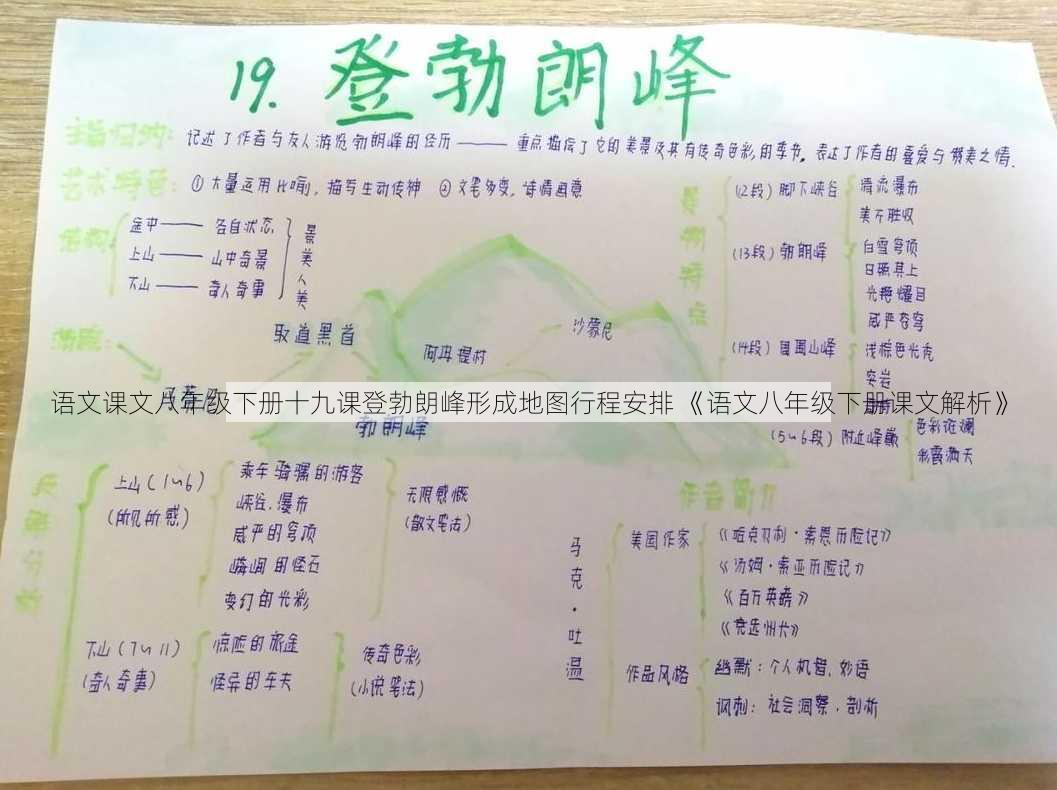 19. 登勃朗峰
主旨归纳: 记述了作者与友人游览勃朗峰的经历——重点描绘了它的美景及其有传奇色彩的车夫。表达了作者的喜爱与赞美之情.
艺术特色: ①大量运用比喻, 描写生动传神 ②文笔多变, 诗情画意
结构
途中——各自状态
上山——山中奇景
下山——奇人奇事
景美人美
景物特点
(12段) 脚下峡谷
清流瀑布
美不胜收
(13段) 勃朗峰
白雪穹顶
日照其上
光艳耀目
威严苍穹
(14段) 周围山峰
浅棕色光秃
突岩
(5~6段) 附近峰巅
色彩斑斓
彩霞满天
取道黑首
阿冉提村
沙蒙尼
勃朗峰
语文课文八年级下册十九课登勃朗峰形成地图行程安排 《语文八年级下册课文解析》
上山(1~6)
(所见所感)
乘车骑骡的游客
峡谷,瀑布
威严的穹顶
嶙峋的怪石
变幻的光彩
无限感慨
(散文笔法)
下山(7~11)
(奇人奇事)
惊险的旅途
怪异的车夫
传奇色彩
(小说笔法)
作者简介
马克·吐温
美国作家
《哈克贝利·索恩历险记》
《汤姆·索亚历险记》
《百万英磅》
《竞选州长》
作品风格
幽默: 个人机智,妙语
讽刺: 社会洞察,剖析